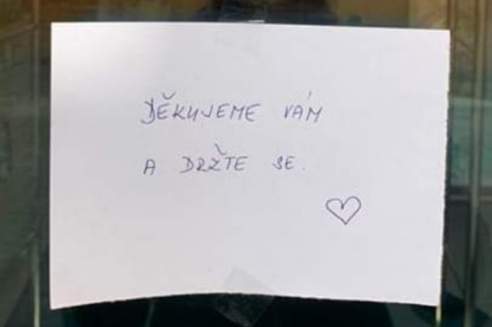 DĚKUJEME VÁM
A DRŽTE SE.